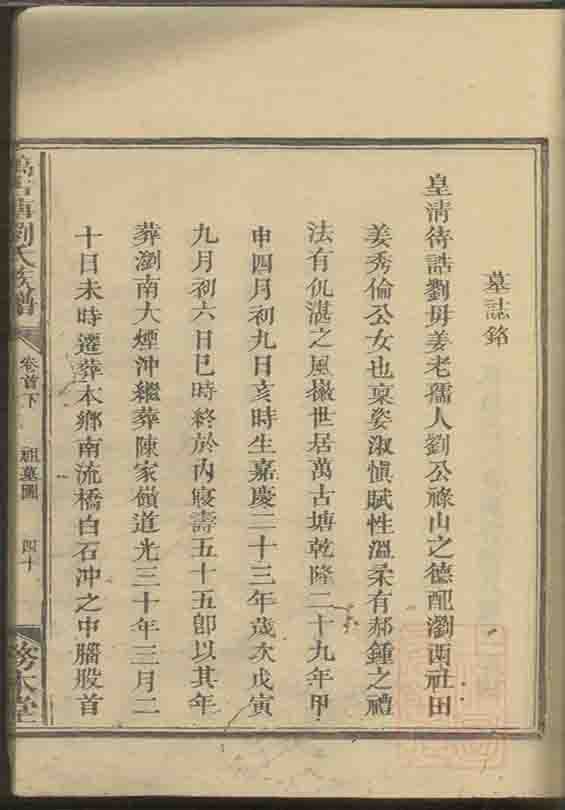 墓誌銘
皇清待誥劉母姜老孺人劉公祿山之德配瀏西社田
姜秀倫公女也稟姿淑愼賦性溫柔有郝鍾之禮
法有仉湛之風徽世居萬古塘乾隆二十九年甲
申四月初九日亥時生嘉慶二十三年歲次戊寅
九月初六日巳時終於內寢壽五十五卽以其年
葬瀏南大煙沖繼葬陳家嶺道光三十年三月二
十日未時遷葬本鄉南流橋白石冲之中腦股首
萬古塘劉氏族譜
卷首下
祖墓圖
四十
務本堂